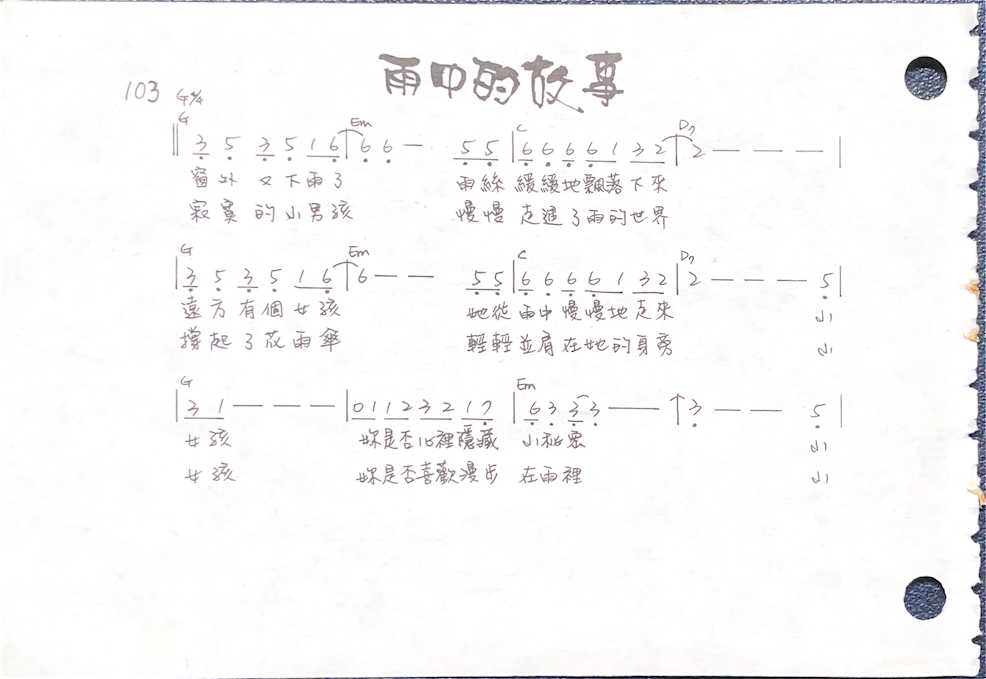 雨中的故事
103 G 4/4
G Em C D7
3 5 3 5 1 6 | 6 6 — 5 5 | 6 6 6 6 1 3 2 | 2 — — — |
窗外 又下雨了 雨絲 緩緩地飄落下來
寂寞 的小男孩 慢慢 走進了雨的世界
G Em C D7
| 3 5 3 5 1 6 | 6 — — 5 5 | 6 6 6 6 1 3 2 | 2 — — — 5 |
遠方有個女孩 她從雨中慢慢地走來 小
撐起了花雨傘 輕輕並肩在她的身旁 小
G Em
| 3 1 — — — | 0 1 1 2 3 2 1 7 | 6 3 3 3 — — | 3 — — 5 |
女孩 妳是否心裡隱藏 小秘密 小
女孩 妳是否喜歡漫步 在雨裡 小